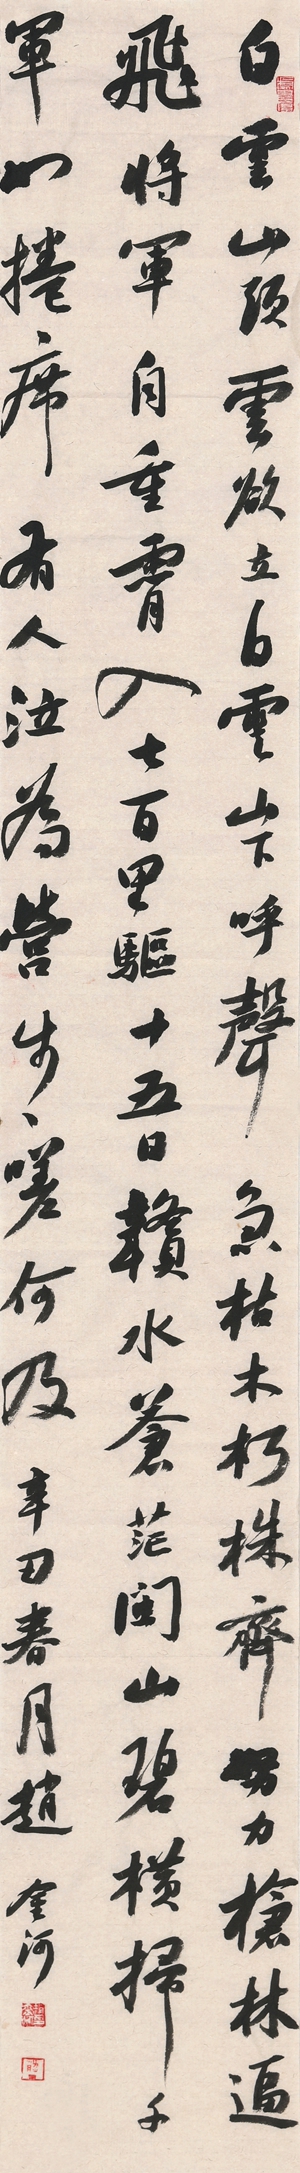 白雲山頭雲欲立白雲山下呼聲急枯木朽株齊努力槍林逼
飛將軍自重霄入七百里驅十五日贛水蒼茫閩山碧橫掃千
軍如捲席有人泣為營步步嗟何及辛丑春月趙金河